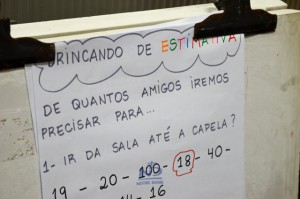 BRINCANDO DE ESTIMATIVA
DE QUANTOS AMIGOS IREMOS
PRECISAR PARA...
1- IR DA SALA ATÉ A CAPELA?
19 - 20 - 100 - 18 - 40 -
14 - 16